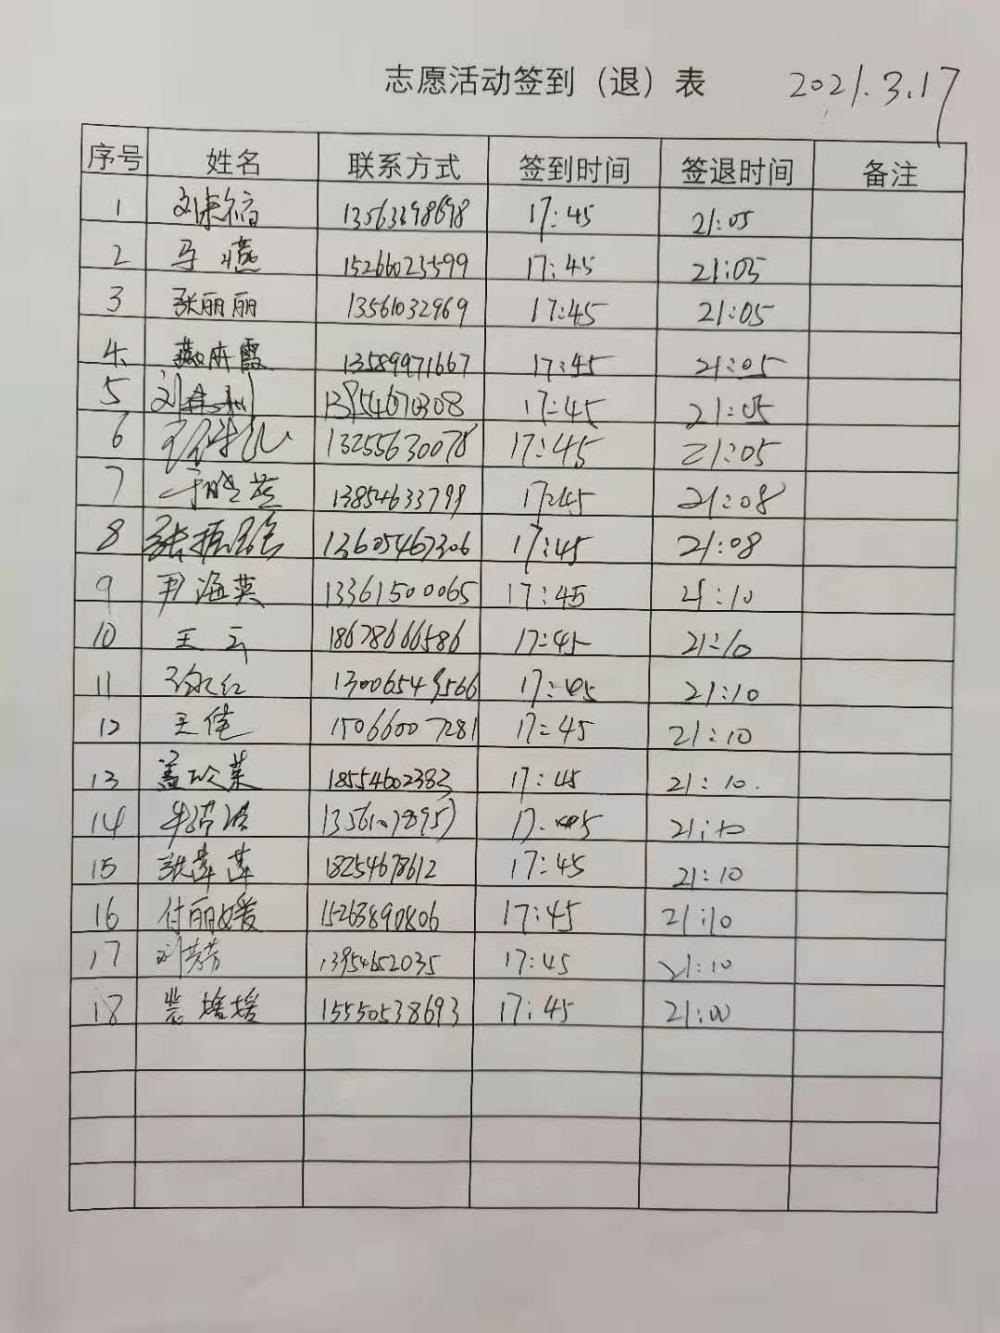 志愿活动签到（退）表 2021.3.17
序号 姓名 联系方式 签到时间 签退时间 备注
1 17:45 21:05
2 马燕 15266023599 17:45 21:05
3 张丽丽 13561032969 17:45 21:05
4 13589971667 17:45 21:05
5 17:45 21:05
6 13255630078 17:45 21:05
7 13854633799 17:45 21:08
8 13605467306 17:45 21:08
9 尹海英 13361500065 17:45 21:10
10 王云 18678666586 17:45 21:10
11 17:45 21:10
12 王倩 15066007281 17:45 21:10
13 18554602382 17:45 21:10.
14 17:45 21:10
15 张萍萍 18254678612 17:45 21:10
16 付丽媛 15263890806 17:45 21:10
17 刘芳芳 13954652035 17:45 21:10
18 裴媛媛 15550538693 17:45 21:00